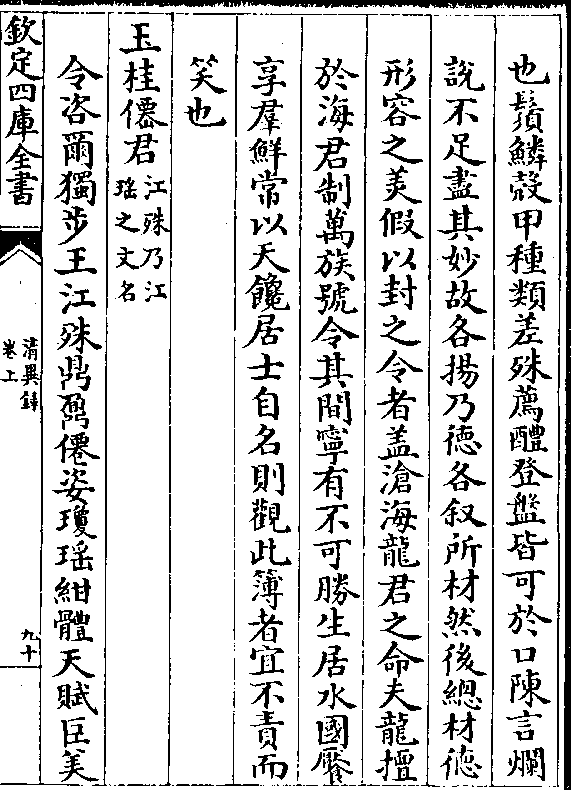 也鬚鱗殼甲種類差殊薦醴登盤皆可於口陳言爛
說不足盡其妙故各揚乃德各叙所材然後總材德
形容之美假以封之令者盖滄海龍君之命夫龍擅
於海君制萬族號令其間寧有不可勝生居水國饜
享羣鮮常以天饞居士自名則觀此簿者宜不責而
笑也
玉桂僊君江殊乃江
瑤之文名
令咨爾獨步王江殊鼎鼐僊姿瓊瑶紺體天賦巨美
欽定四庫全書
清異錄
卷上
九十